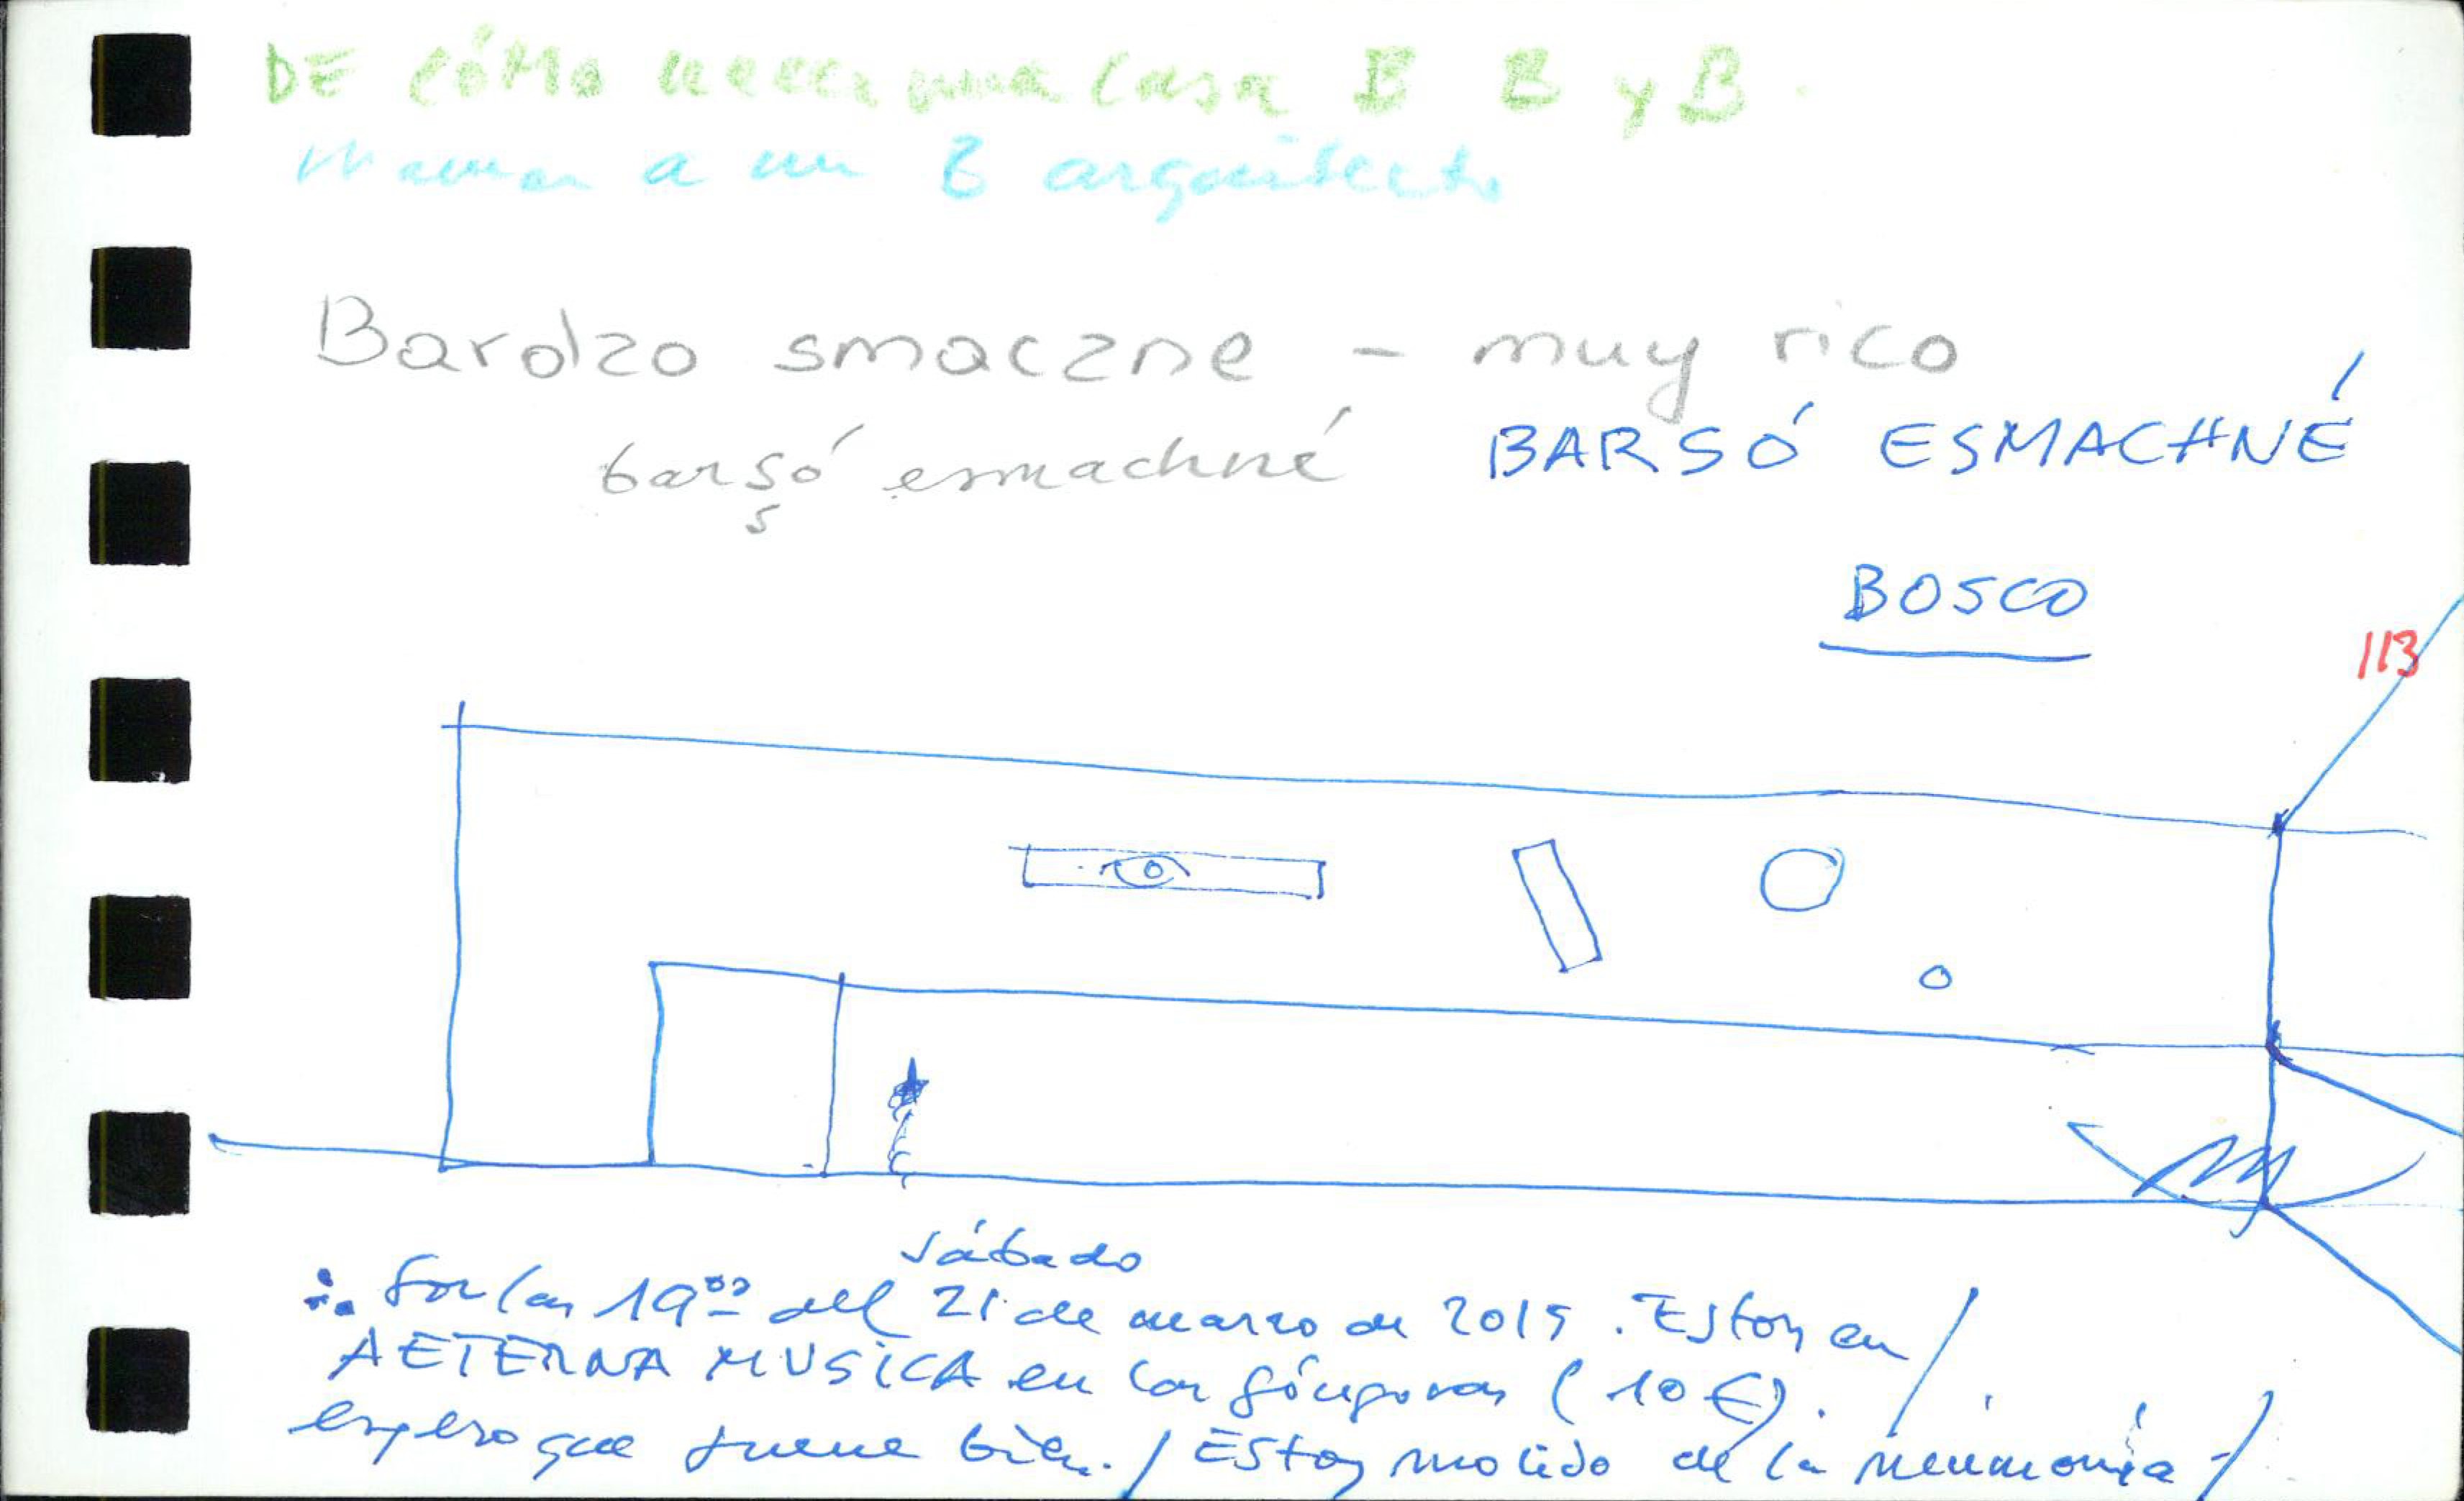 DE CÓMO hacer una casa B B y B.
llaman a un B arquitecto
Bardzo smaczne - muy rico
barsó esmachné BARSÓ ESMACHNÉ
s
BOSCO
113
sábado
Son las 19:00 del 21 de marzo de 2015. Estoy en /
AETERNA MUSICA en las Góngoras (10 €).
espero que suene bien. / Estoy molido de la neumonía /